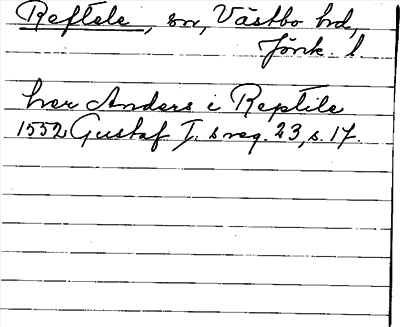 Reftele, sn, Västbo hd,
Jönk. l.
herr Anders i Reptile
1552 Gustaf I:s reg. 23, s. 17.